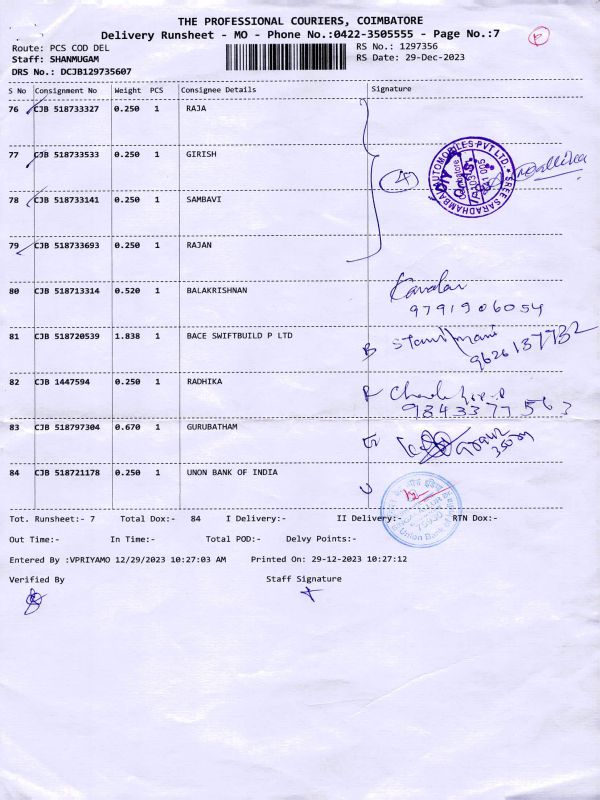 THE PROFESSIONAL COURIERS, COIMBATORE
Delivery Runsheet - MO - Phone No.:0422-3505555 - Page No.:7
Route: PCS COD DEL
RS No.: 1297356
Staff: SHANMUGAM
RS Date: 29-Dec-2023
DRS No.: DCJB129735607
S No Consignment No Weight PCS Consignee Details Signature
76 CJB 518733327 0.250 1 RAJA
77 CJB 518733533 0.250 1 GIRISH
78 CJB 518733141 0.250 1 SAMBAVI
79 CJB 518733693 0.250 1 RAJAN
4
SREE SARADHAMBAL AUTOMOBILES PVT LTD.
80 CJB 518713314 0.520 1 BALAKRISHNAN
9791906054
81 CJB 518720539 1.838 1 BACE SWIFTBUILD P LTD
9626137732
82 CJB 1447594 0.250 1 RADHIKA
9843377563
83 CJB 518797304 0.670 1 GURUBATHAM
84 CJB 518721178 0.250 1 UNON BANK OF INDIA
Union Bank
Tot. Runsheet:- 7 Total Dox:- 84 I Delivery:- II Delivery:- RTN Dox:-
Out Time:- In Time:- Total POD:- Delvy Points:-
Entered By :VPRIYAMO 12/29/2023 10:27:03 AM Printed On: 29-12-2023 10:27:12
Verified By Staff Signature